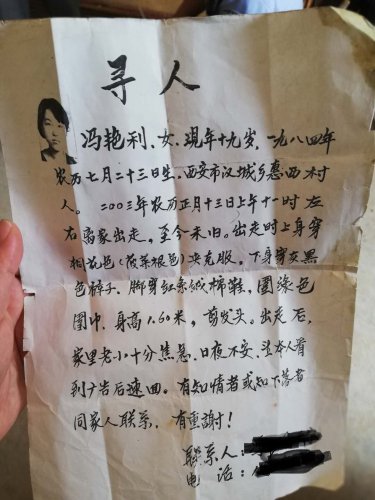 寻人
冯艳利、女、现年十九岁，一九八四年
农历七月二十三日生，西安市汉城乡惠西村
人。二00三年农历正月十三日上午十一时左
右离家出走，至今未归。出走时上身穿
桃花色（菠菜根色）夹克服，下身穿灰黑
色裤子、脚穿红条绒棉鞋，围绿色
围巾、身高1.60米，剪发头。出走后，
家里老小十分焦急、日夜不安、望本人看
到广告后速回。有知情者或知下落者
同家人联系，有重謝！
联系人：
电话：